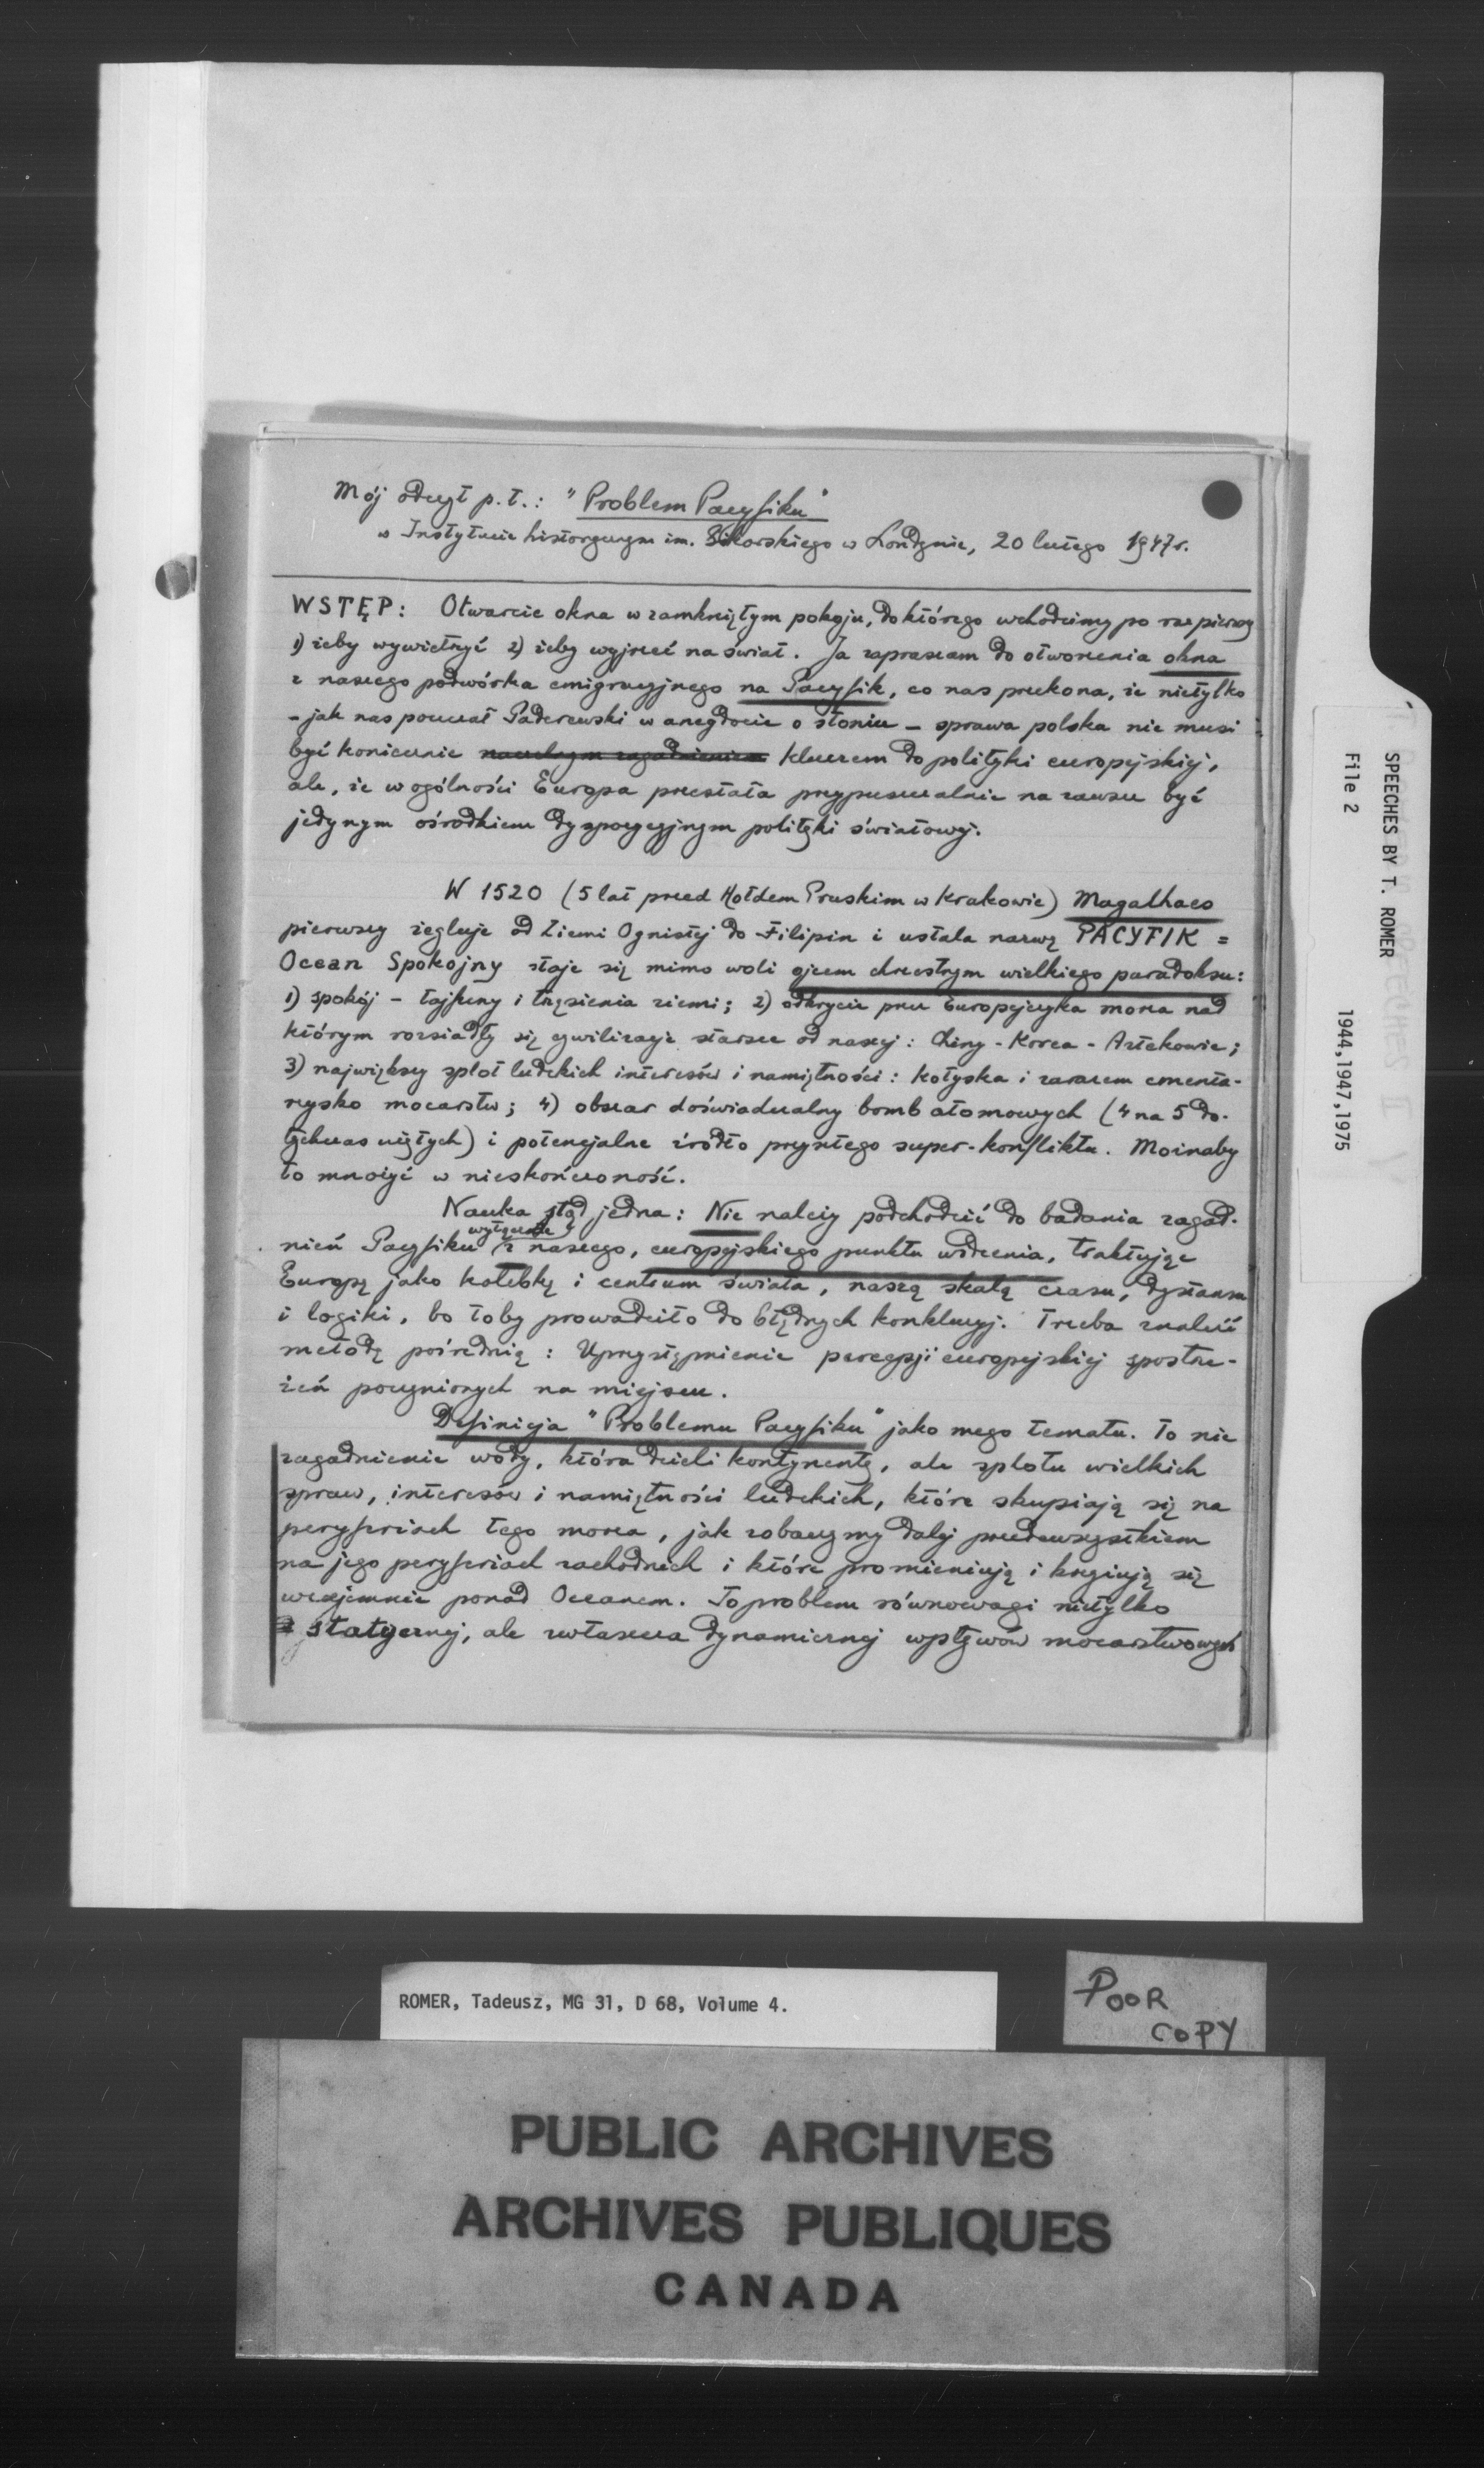 Mój odczyt p.t.: "Problem Pacyfiku"
w Instytucie historycznym im. Sikorskiego w Londynie, 20 lutego 1947 r.
WSTĘP: Otwarcie okna w zamkniętym pokoju, do którego wchodzimy po raz pierwszy
1) żeby wywietrzyć 2) żeby wyjrzeć na świat. Ja zapraszam do otworzenia okna
z naszego podwórka emigracyjnego na Pacyfik, co nas przekona, że nietylko
- jak nas pouczał Paderewski w anegdocie o słoniu - sprawa polska nie musi
być koniecznie naczelnym zagadnieniem kluczem do polityki europejskiej,
ale, że w ogólności Europa przestała przypuszczalnie na zawsze być
jedynym ośrodkiem dyspozycyjnym polityki światowej.
W 1520 (5 lat przed Hołdem Pruskim w Krakowie) Magalhaes
pierwszy żegluje od Ziemi Ognistej do Filipin i ustala nazwę PACYFIK =
Ocean Spokojny staje się mimo woli ojcem chrzestnym wielkiego paradoksu:
1) spokój - tajfuny i trzęsienia ziemi; 2) odkrycie przez Europejczyka morza nad
którym rozsiadły się cywilizacje starsze od naszej: Chiny - Korea - Aztekowie;
3) największy splot ludzkich interesów i namiętności: kołyska i zarazem cmenta-
rzysko mocarstw; 4) obszar doświadczalny bomb atomowych (4 na 5 do-
tychczas użytych) i potencjalne źródło przyszłego super-konfliktu. Możnaby
to mnożyć w nieskończoność.
Nauka stąd jedna: Nie należy podchodzić do badania zagad-
wyłącznie
nień Pacyfiku z naszego, europejskiego punktu widzenia, traktując
Europę jako kolebkę i centrum świata, naszą skalą czasu, dystansu
i logiki, bo toby prowadziło do błędnych konkluzyj. Trzeba znaleźć
metodę pośrednią: Uprzystępnienie percepcji europejskiej spostrze-
żeń poczynionych na miejscu.
Definicja "Problemu Pacyfiku" jako mego tematu. To nie
zagadnienie wody, która dzieli kontynenty, ale splotu wielkich
spraw, interesów i namiętności ludzkich, które skupiają się na
peryferiach tego morza, jak zobaczymy dalej przedewszystkiem
na jego peryferiach zachodnich i które promieniują i krzyżują się
wzajemnie ponad Oceanem. To problem równowagi nietylko
statycznej, ale zwłaszcza dynamicznej wpływów mocarstwowych
SPEECHES BY T. ROMER
File 2
1944,1947,1975
ROMER, Tadeusz, MG 31, D 68, Volume 4.
POOR
COPY
PUBLIC ARCHIVES
ARCHIVES PUBLIQUES
CANADA